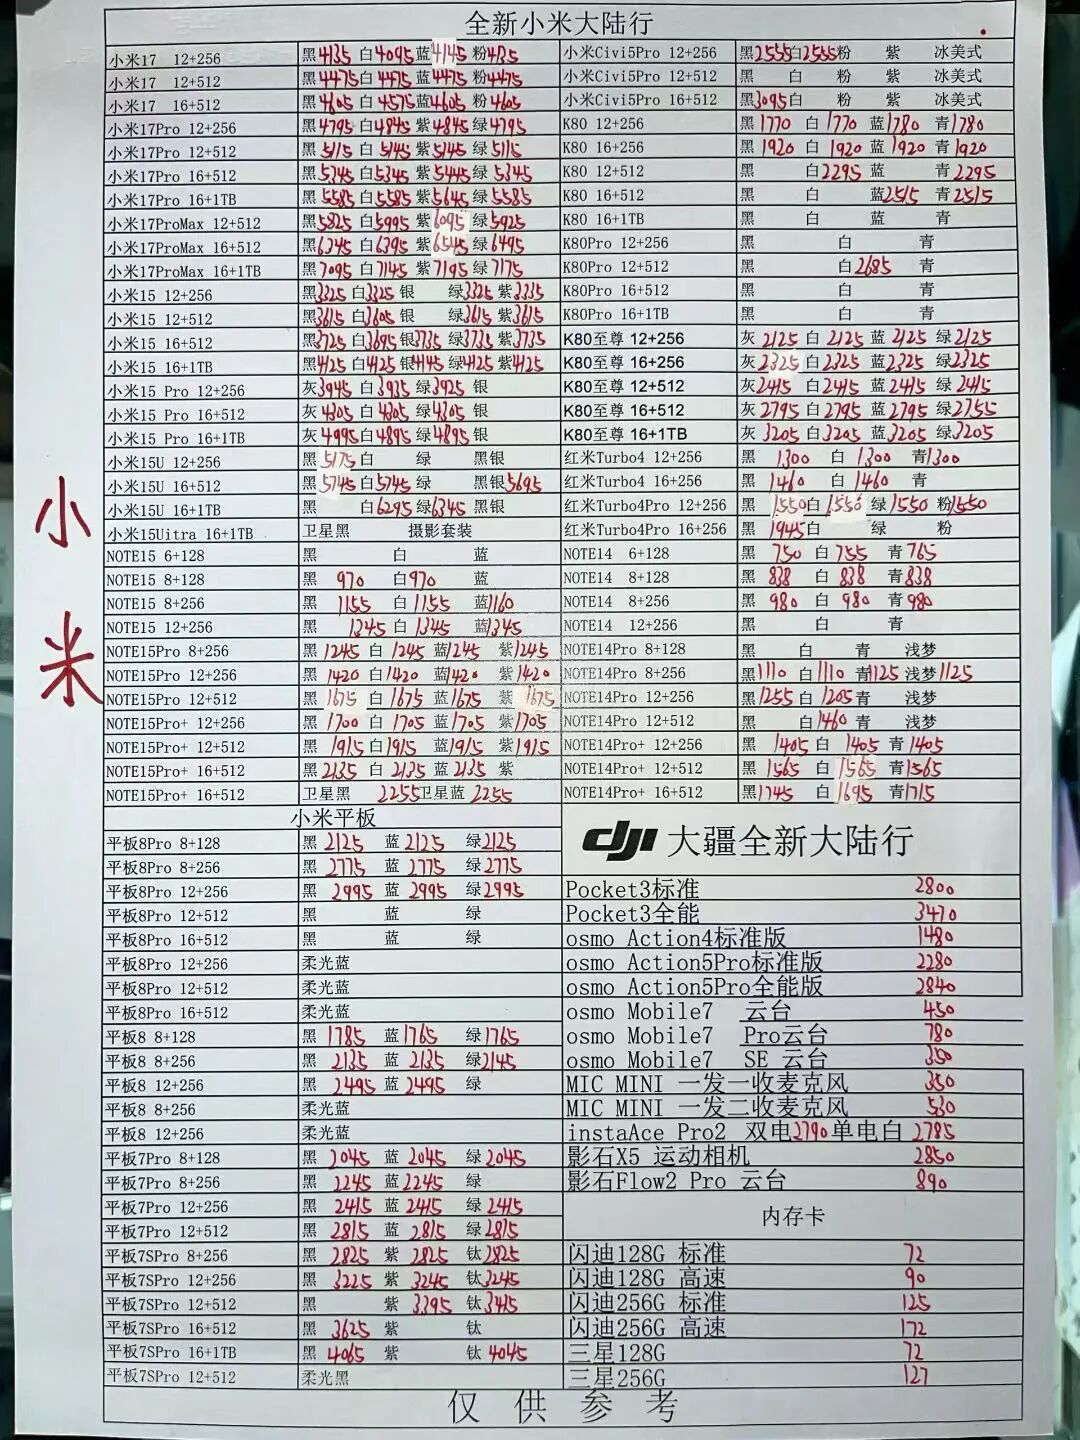 全新小米大陆行
小米17 12+256 黑4135 白4095 蓝4145 粉4135 小米Civi5Pro 12+256 黑2555白2555粉 紫 冰美式
小米17 12+512 黑4475 白4475 蓝4475 粉4475 小米Civi5Pro 12+512 黑 白 粉 紫 冰美式
小米17 16+512 黑4605 白4575蓝4605 粉4605 小米Civi5Pro 16+512 黑3095白 粉 紫 冰美式
小米17Pro 12+256 黑4795 白4845 紫4845 绿4795 K80 12+256 黑1770 白1770 蓝1780 青1780
小米17Pro 12+512 黑5115 白5145 紫5145 绿5115 K80 16+256 黑1920 白1920 蓝1920 青1920
小米17Pro 16+512 黑5345 白5345 紫5445 绿5345 K80 12+512 黑 白2295 蓝 青2295
小米17Pro 16+1TB 黑5585 白5585 紫5645 绿5585 K80 16+512 黑 白 蓝2515 青2515
小米17ProMax 12+512 黑5825 白5995 紫6095 绿5925 K80 16+1TB 黑 白 蓝 青
小米17ProMax 16+512 黑6345 白6395 紫6545 绿6495 K80Pro 12+256 黑 白 青
小米17ProMax 16+1TB 黑7095 白7145 紫7195 绿7175 K80Pro 12+512 黑 白2685 青
小米15 12+256 黑3325 白3325 银 绿3325 紫3335 K80Pro 16+512 黑 白 青
小米15 12+512 黑3615 白3605 银 绿3615 紫3615 K80Pro 16+1TB 黑 白 青
小米15 16+512 黑3725 白3695 银3735 绿3735 紫3735 K80至尊 12+256 灰2125 白2125 蓝2125 绿2125
小米15 16+1TB 黑4125 白4125 银4145 绿4125 紫4125 K80至尊 16+256 灰2325 白2325 蓝2325 绿2325
小米15 Pro 12+256 灰3945 白3935 绿3925 银 K80至尊 12+512 灰2415 白2415 蓝2415 绿2415
小米15 Pro 16+512 灰4305 白4305 绿4305 银 K80至尊 16+512 灰2795 白2795 蓝2795 绿2755
小米15 Pro 16+1TB 灰4995白4895 绿4895 银 K80至尊 16+1TB 灰3205 白3205 蓝3205 绿3205
小米15U 12+256 黑5175 白 绿 黑银 红米Turbo4 12+256 黑1300 白1300 青1300
小米15U 16+512 黑5745 白5745 绿 黑银5695 红米Turbo4 16+256 黑1460 白1460 青
小米15U 16+1TB 黑 白6295 绿6345 黑银 红米Turbo4Pro 12+256 黑1550白1550 绿1550 粉1550
小米15Uitra 16+1TB 卫星黑 摄影套装 红米Turbo4Pro 16+256 黑1945白 绿 粉
NOTE15 6+128 黑 白 蓝 NOTE14 6+128 黑750 白755 青765
NOTE15 8+128 黑970 白970 蓝 NOTE14 8+128 黑838 白838 青838
NOTE15 8+256 黑1155 白1155 蓝1160 NOTE14 8+256 黑980 白980 青980
NOTE15 12+256 黑1345 白1345 蓝1345 NOTE14 12+256 黑 白 青
NOTE15Pro 8+256 黑1245 白1245 蓝1245 紫1245 NOTE14Pro 8+128 黑 白 青 浅梦
NOTE15Pro 12+256 黑1420 白1420 蓝1420 紫1420 NOTE14Pro 8+256 黑1110 白1110 青1125 浅梦1125
NOTE15Pro 12+512 黑1675 白1675 蓝1675 紫1675 NOTE14Pro 12+256 黑1255 白1205青 浅梦
NOTE15Pro+ 12+256 黑1700 白1705 蓝1705 紫1705 NOTE14Pro 12+512 黑 白1460 青 浅梦
NOTE15Pro+ 12+512 黑1915 白1915 蓝1915 紫1915 NOTE14Pro+ 12+256 黑1405 白1405 青1405
NOTE15Pro+ 16+512 黑2135 白2135 蓝2135 紫 NOTE14Pro+ 12+512 黑1565 白1565 青1565
NOTE15Pro+ 16+512 卫星黑 2255卫星蓝 2255 NOTE14Pro+ 16+512 黑1745 白1695 青1715
小米
小米平板
dji 大疆全新大陆行
平板8Pro 8+128 黑2125 蓝2125 绿2125
平板8Pro 8+256 黑2775 蓝2775 绿2775
平板8Pro 12+256 黑2995 蓝2995 绿2995 Pocket3标准 2800
平板8Pro 12+512 黑 蓝 绿 Pocket3全能 3470
平板8Pro 16+512 黑 蓝 绿 osmo Action4标准版 1480
平板8Pro 12+256 柔光蓝 osmo Action5Pro标准版 2280
平板8Pro 12+512 柔光蓝 osmo Action5Pro全能版 2840
平板8Pro 16+512 柔光蓝 osmo Mobile7 云台 450
平板8 8+128 黑1785 蓝1765 绿1765 osmo Mobile7 Pro云台 780
平板8 8+256 黑2135 蓝2135 绿2145 osmo Mobile7 SE 云台 350
平板8 12+256 黑2495 蓝2495 绿 MIC MINI 一发一收麦克风 350
平板8 8+256 柔光蓝 MIC MINI 一发二收麦克风 530
平板8 12+256 柔光蓝 instaAce Pro2 双电2790单电白 2785
平板7Pro 8+128 黑2045 蓝2045 绿2045 影石X5 运动相机 2850
平板7Pro 8+256 黑2245 蓝2245 绿 影石Flow2 Pro 云台 890
平板7Pro 12+256 黑2415 蓝2415 绿2415 内存卡
平板7Pro 12+512 黑2815 蓝2815 绿2815
平板7SPro 8+256 黑2825 紫2825 钛2825 闪迪128G 标准 72
平板7SPro 12+256 黑3225 紫3245 钛3245 闪迪128G 高速 90
平板7SPro 12+512 黑 紫3395 钛3415 闪迪256G 标准 125
平板7SPro 16+512 黑3625 紫 钛 闪迪256G 高速 172
平板7SPro 16+1TB 黑4065 紫 钛4045 三星128G 72
平板7SPro 12+512 柔光黑 三星256G 127
仅供参考